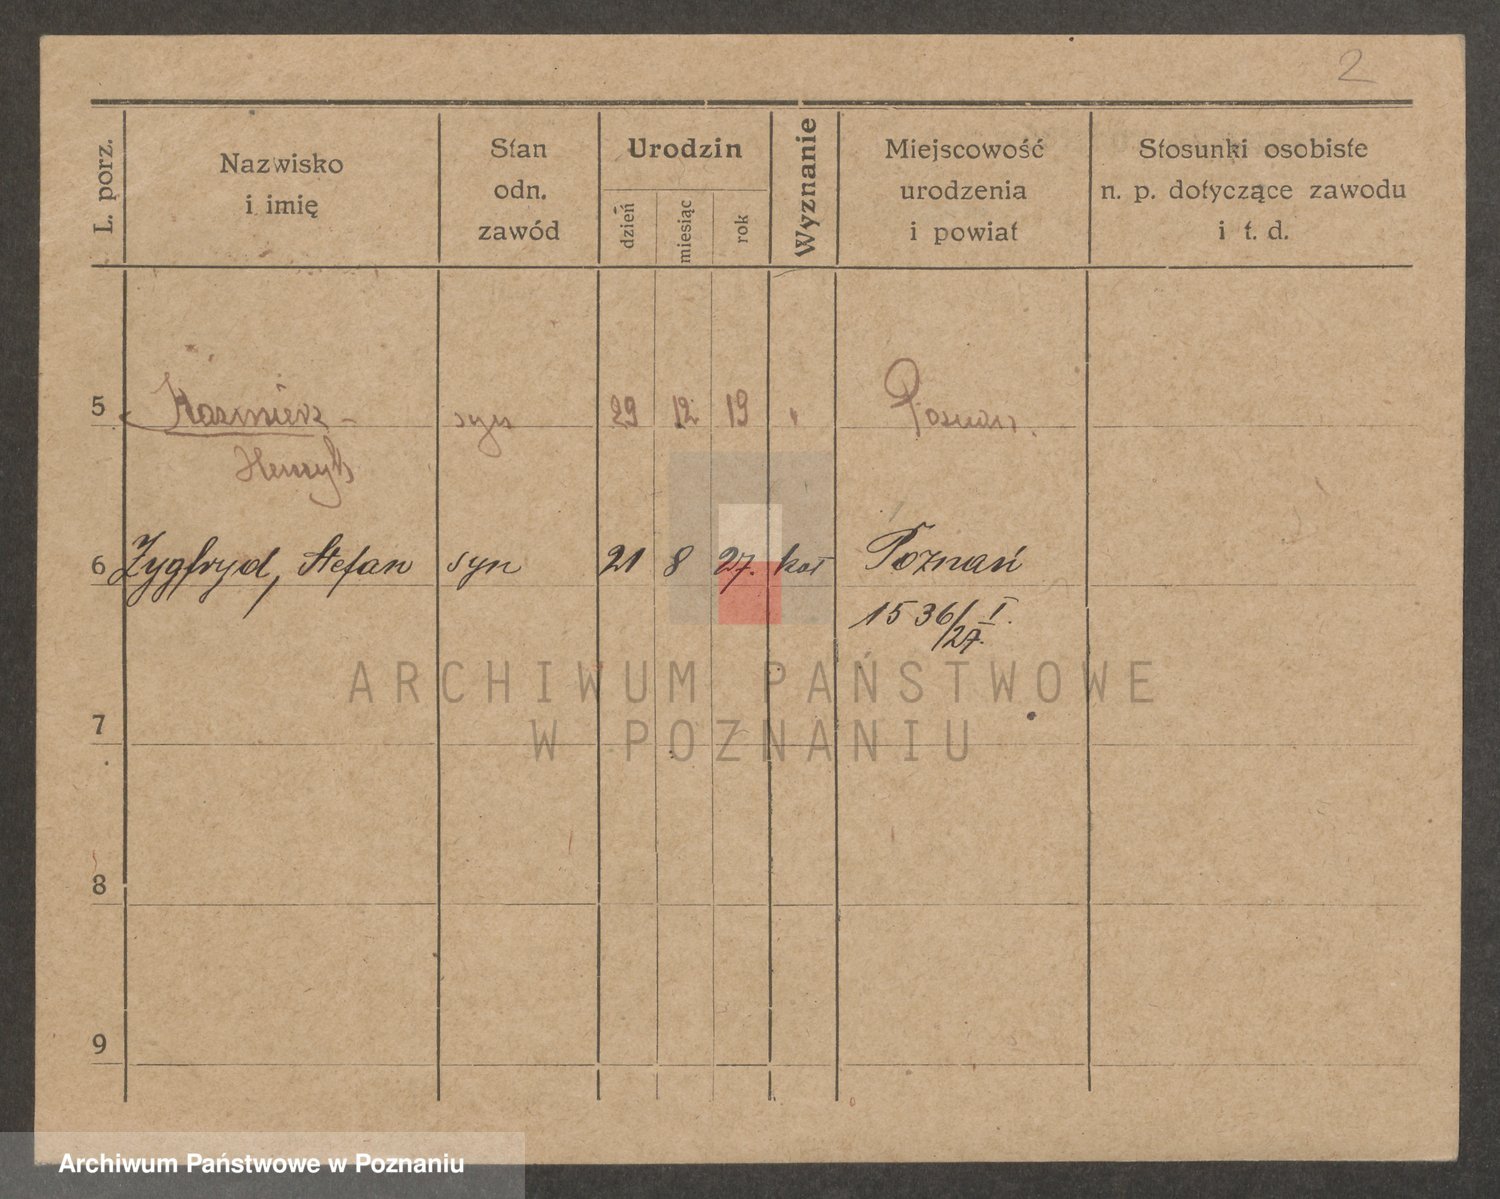 2
L. porz.
Nazwisko
i imię
Stan
odn.
zawód
Urodzin
dzień
miesiąc
rok
Wyznanie
Miejscowość
urodzenia
i powiat
Stosunki osobiste
n. p. dotyczące zawodu
i t. d.
5 Kazimierz - syn 29 12 19 " Poznań.
Henryk
6 Zygfryd, Stefan syn 21 8 27. kat Poznań
1536/I.
/27.
ARCHIWUM PAŃSTWOWE
W POZNANIU
7
8
9
Archiwum Państwowe w Poznaniu